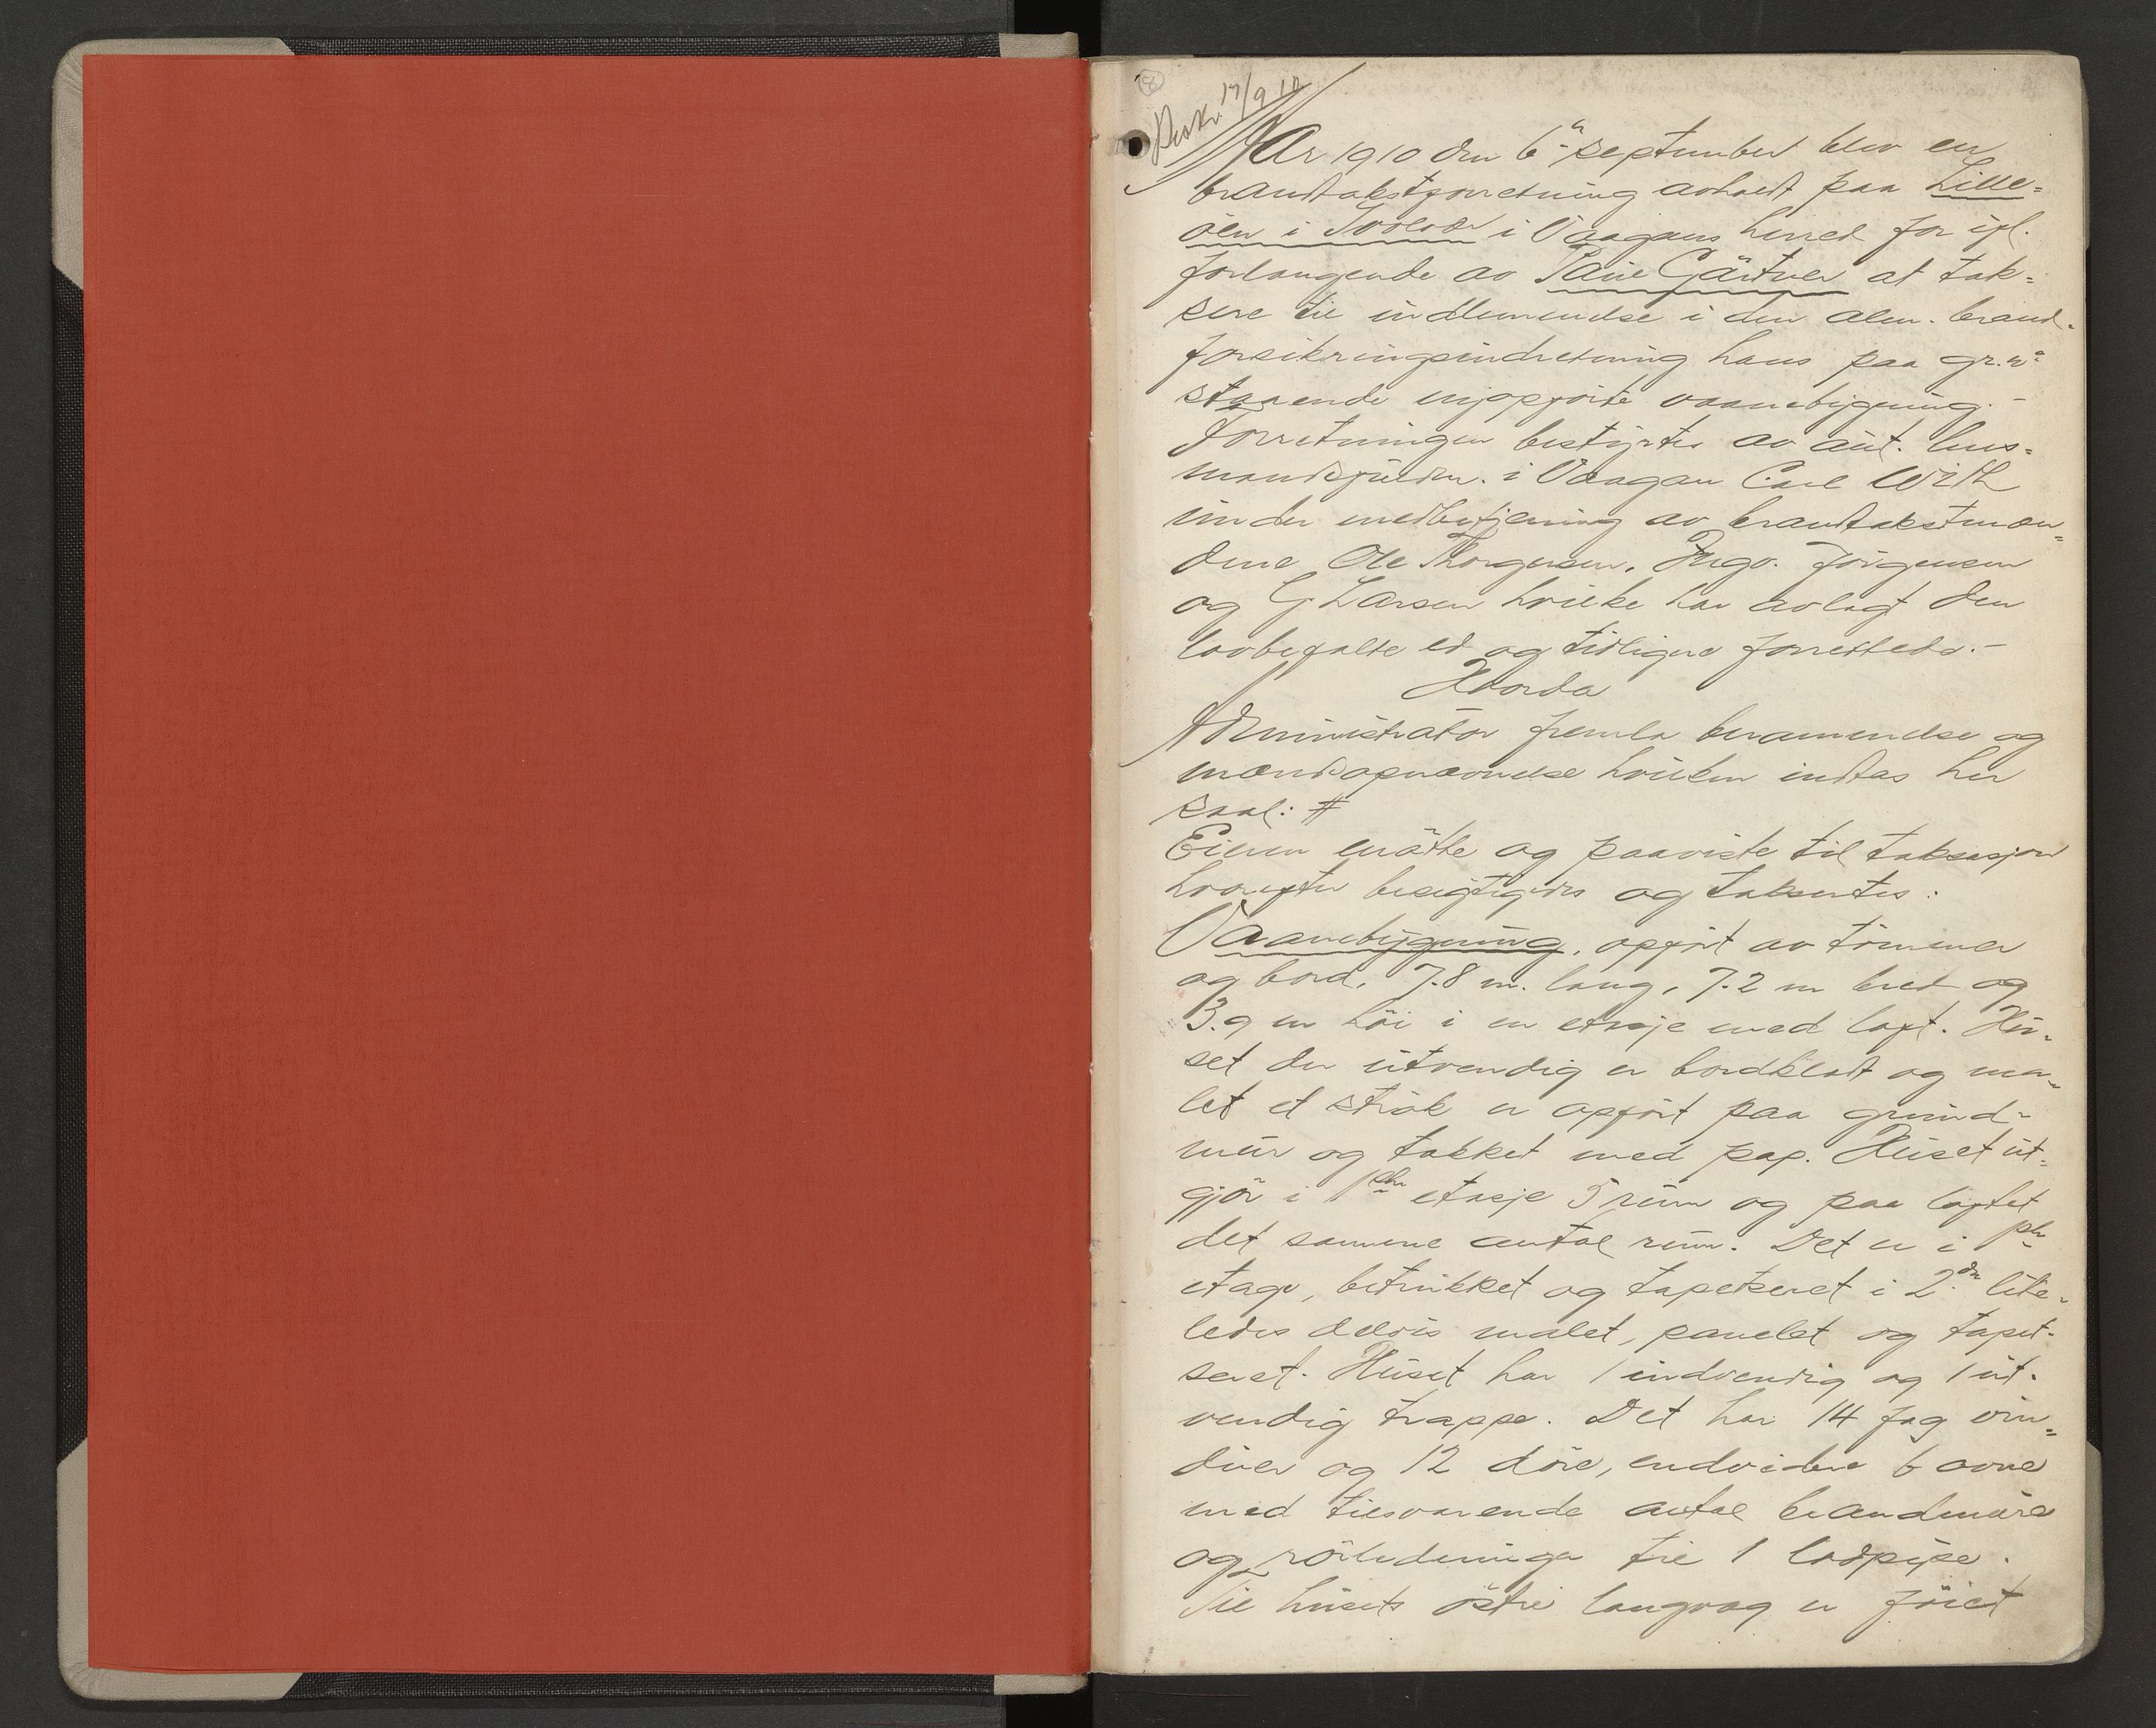 17/9 10
Aar 1910 den 6te september blev en
brandtakstforretning avholdt paa Lille=
öen i Svolvær i Vaagans herred for ifl.
forlangende av Paul Gärtner at tak=
sere til indlemmelse i den alm. brand-
forsikringsindretning hans paa gr.nº
staaende nyopförte vaanebygning.-
Forretningen bestyrtes av aut. lens=
mandsfuldm. i Vaagan Carl Wirth
under medbetjening av brandtakstmæn=
dene Ole Thorgersen, Ingv. Jörgensen
og G Larsen hvilke har avlagt den
lovbefalte ed og tidligere forrettede.-
Hvorda
Administrator fremla berammelse og
mandsopnævnelse hvilken indtas her
saal: #
Eieren mötte og paaviste til taksasjon
hvorefter besigtigedes og taksertes:
Vaanebygning, opfört av tömmer
og bord, 7.8 m. lang, 7.2 m bred og
3.9 m höi i en etasje med loft. Hu-
set der utvendig er bordklædt og ma-
let et strök er opfört paa grund-
mur og tækket med pap. Huset ut=
gjör i 1ste etasje 5 rum og paa loftet
det samme antal rum. Det er i 1ste
etage, betrukket og tapetseret i 2den like-
ledes delvis malet, panelet og tapet-
seret. Huset har 1 indvendig og 1 ut-
vendig trappe. Det har 14 fag vin=
duer og 12 döre, endvidere 6 ovne
med tilsvarende antal brandmure
og rörledninger til 1 lodpipe.
Til husets östre langvæg er föiet